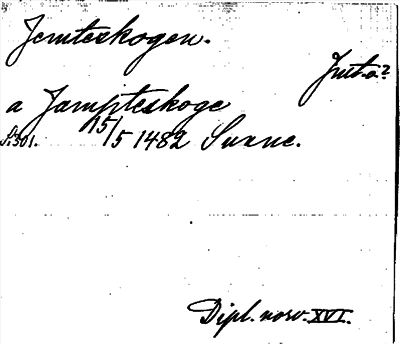 Jemteskogen.
a Jampteskoge
S. 301. 15/5 1482
Dipl. norv. XVI.